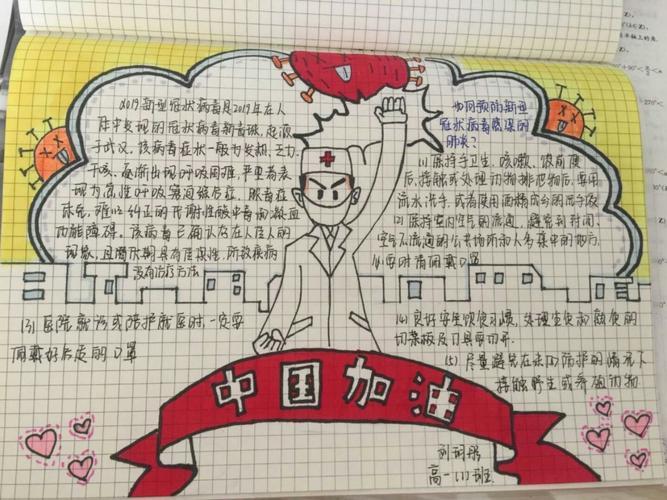 2019新型冠状病毒是2019年在人
群中发现的冠状病毒新毒株,起源
于武汉,该病毒症状一般为发热,乏力,
干咳,逐渐出现呼吸困难,严重者表
现为急性呼吸窘迫综合症,脓毒症
休克,难以纠正的代谢性酸中毒和凝血
功能障碍。该病毒已确认存在人传人的
现象,且潜伏期具有传染性,所致疾病
没有治疗方法
如何预防新型
冠状病毒感染的
肺炎?
(1)保持手卫生,咳嗽,饭前便
后,接触或处理动物排泄物后,要用
流水洗手,或者使用酒精成分的洗手液
(2)保持室内空气的流通,避免到封闭,
空气不流通的公共场所和人多集中的地方,
必要时请佩戴口罩
(3)医院就诊或陪护就医时,一定要
佩戴好合适的口罩
(4)良好安全饮食习惯,处理生食和熟食的
切菜板及刀具要切开
(5)尽量避免在未加防护的情况下
接触野生或养殖动物
中国加油
高一(1)班